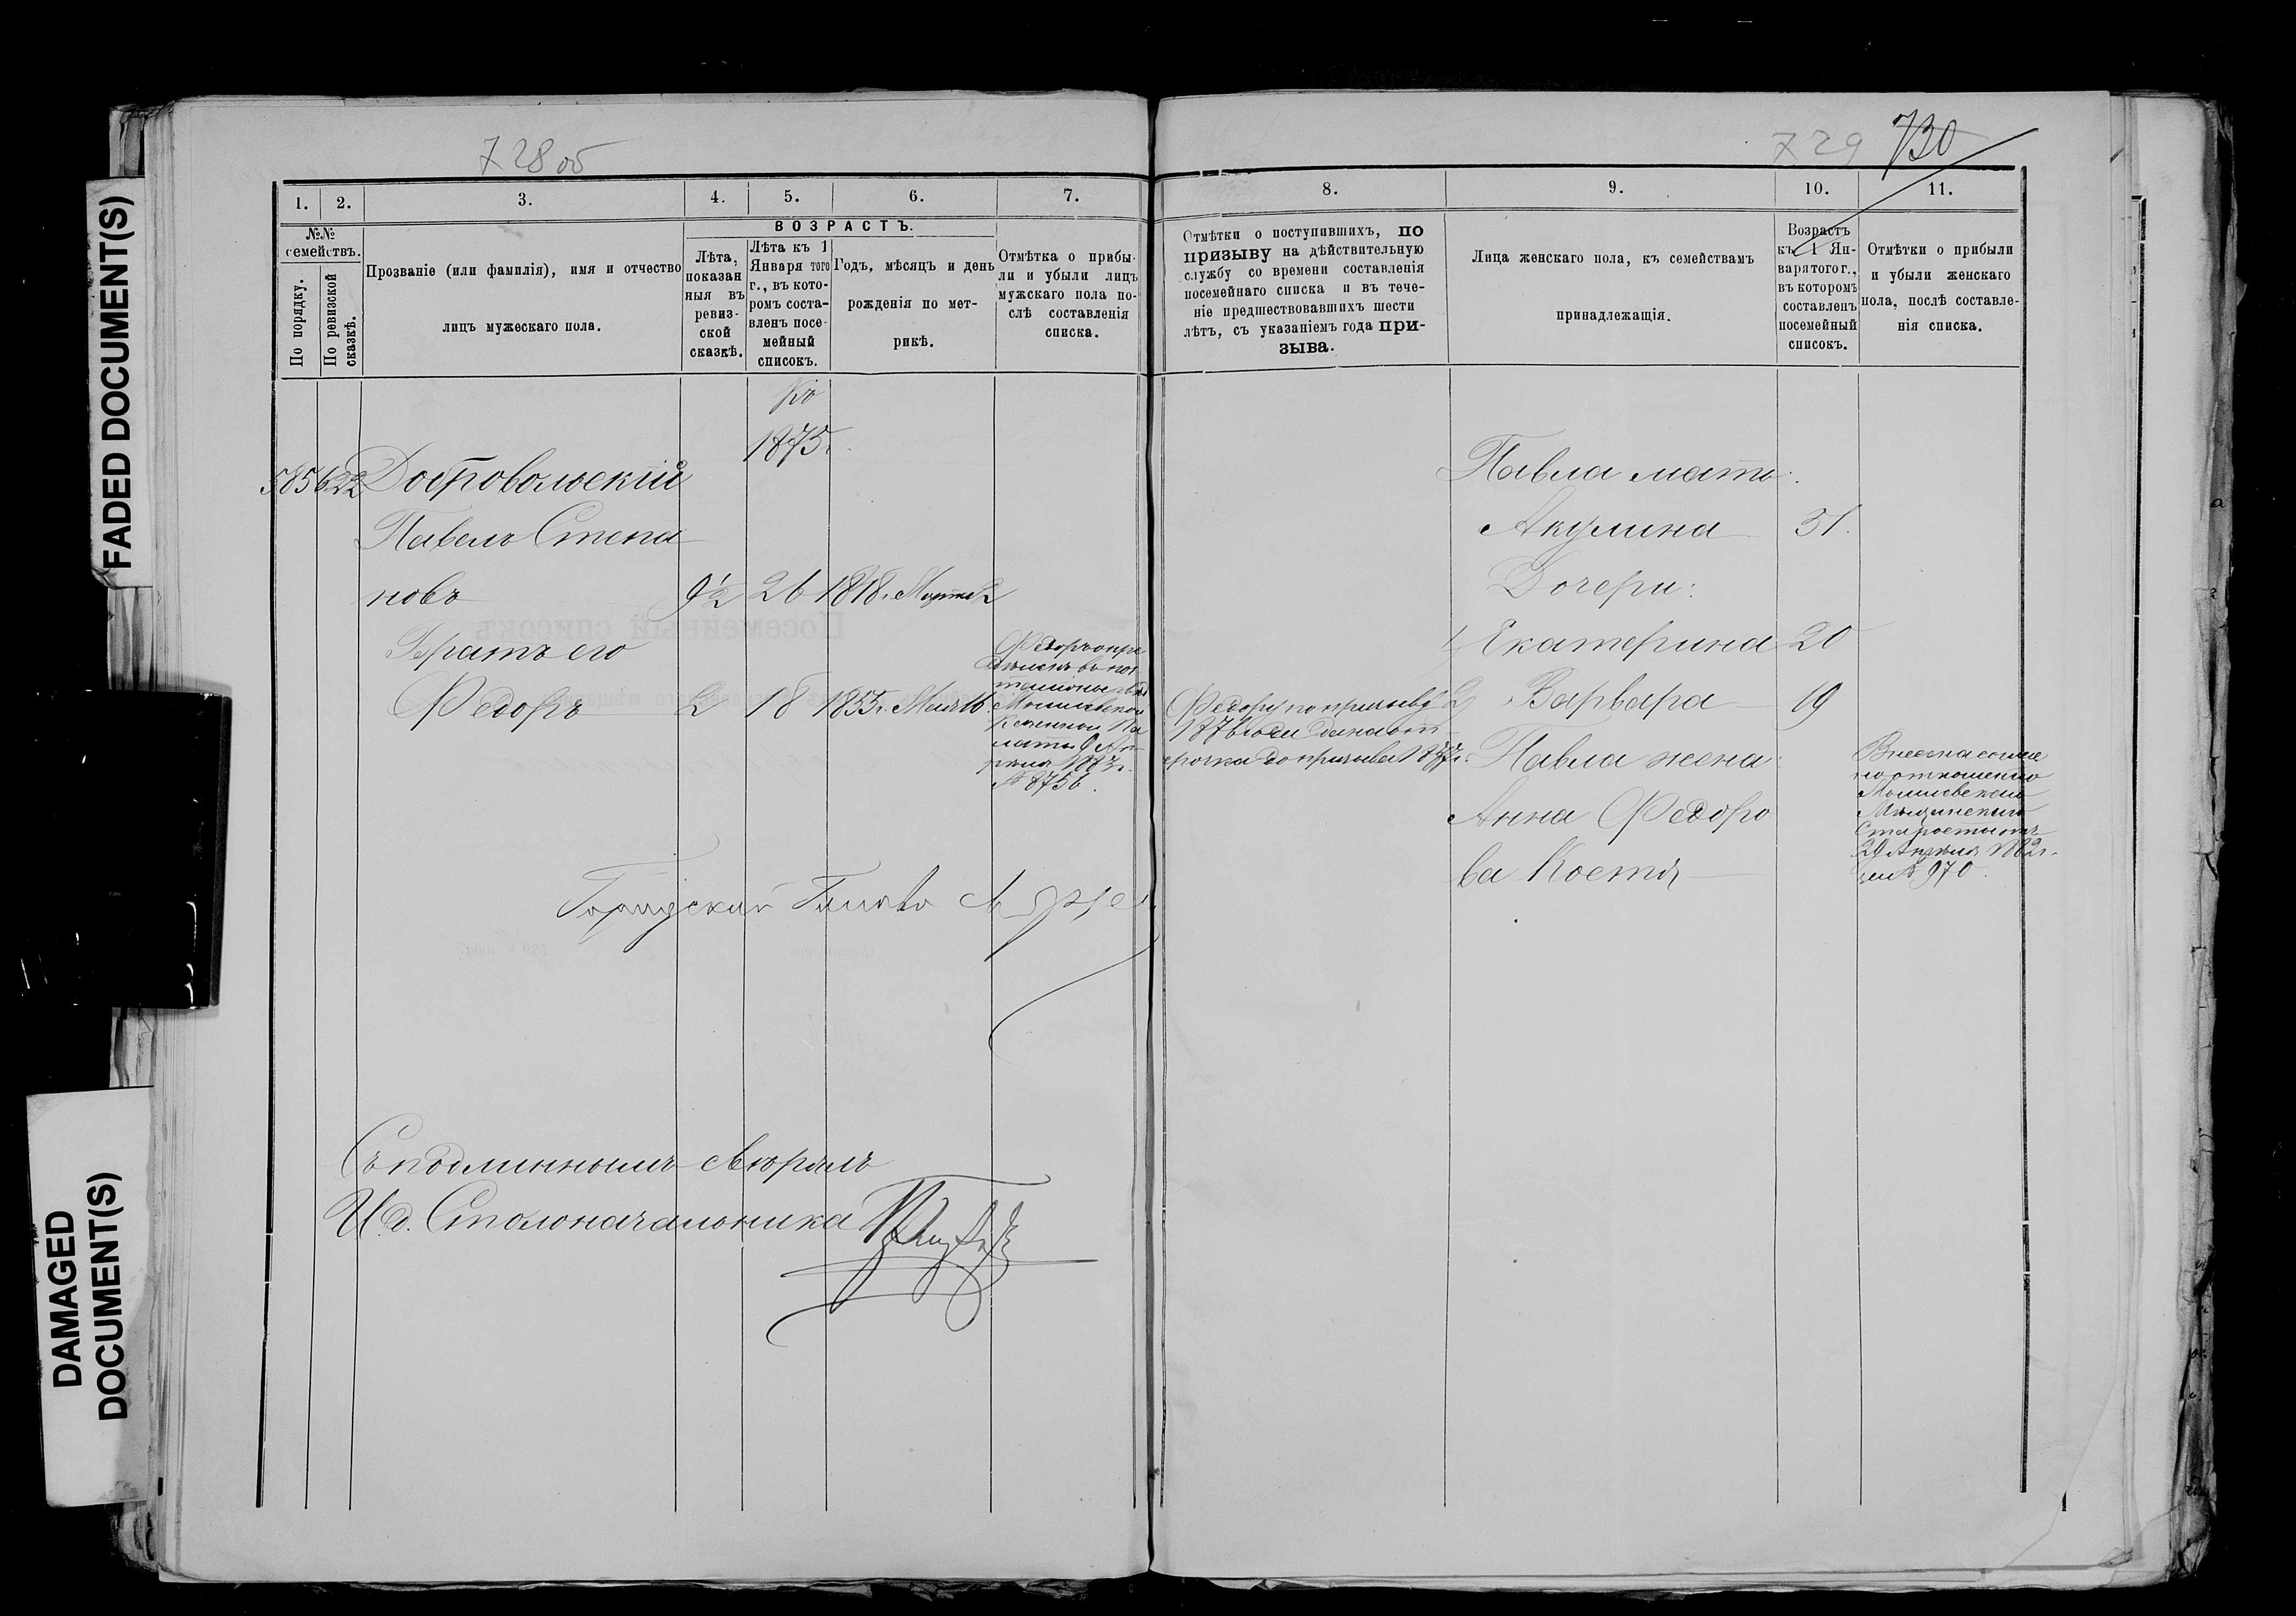 FADED DOCUMENT(S)
DAMAGED
DOCUMENT(S)
728 об
1.
2.
3.
4.
5.
6.
7.
№№
семействъ.
По порядку.
По ревизской
сказкѣ.
Прозваніе (или фамилія), имя и отчество
лицъ мужескаго пола.
ВОЗРАСТЪ.
Лѣта,
показан
ныя въ
ревиз-
ской
сказкѣ.
Лѣта къ 1
Января того
г., въ кото-
ромъ соста-
вленъ посе-
мейный
списокъ.
Годъ, мѣсяцъ и день
рожденія по мет-
рикѣ.
Отмѣтка о прибы-
ли и убыли лицъ
мужскаго пола по-
слѣ составленія
списка.
Къ
1875 г.
585 622 Добровольскій
Павелъ Степа
новъ 9½ 26 1848 г. Марта 2
Братъ его
Федоръ 2 18 1855 г. Мая 16
Федоръ опре
дѣленъ въ поч
Могилевской
Казенной Па
латы 9 Ап
рѣля 1883 г.
№ 8756.
Городской Голова
Съ подлиннымъ свѣрялъ
И.д. Столоначальника
729 730
8.
9.
10.
11.
Отмѣтки о поступившихъ, по
призыву на дѣйствительную
службу со времени составленія
посемейнаго списка и въ тече-
ніе предшествовавшихъ шести
лѣтъ, съ указаніемъ года при-
зыва.
Лица женскаго пола, къ семействамъ
принадлежащія.
Возрастъ
къ 1 Ян-
варя того г.,
въ которомъ
составленъ
посемейный
списокъ.
Отмѣтки о прибыли
и убыли женскаго
пола, послѣ составле-
нія списка.
Федору по призыву
1876 года дана от
срочка до призыва 1877 г.
Павла мать:
Акулина 51.
Дочери:
1 Екатерина 20
2 Варвара 19
Павла жена:
Анна Федоро
ва Костя
Внесена соглас
но отношенію
Могилевскаго
Мѣщанскаго
Старосты отъ
29 Апрѣля 1882 г.
за № 970.